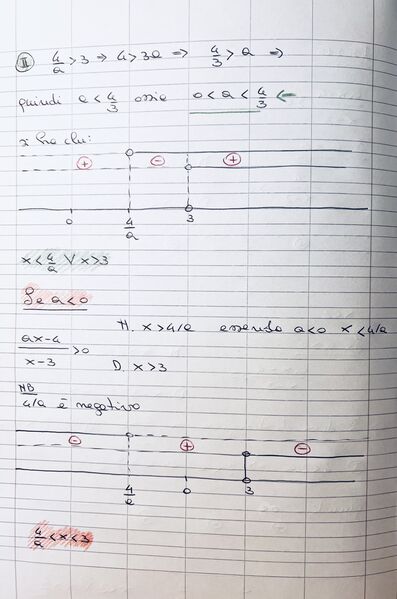 II 4/a > 3 ⇒ 4 > 3a ⇒ 4/3 > a ⇒
quindi a < 4/3 ossia 0 < a < 4/3 ←
ha
+ - +
0 4/a 3
x < 4/a V x > 3
Se a < 0
N. x > 4/a essendo a < 0 x < 4/a
ax-4/x-3 > 0 D. x > 3
NB
4/a è negativo
- + -
4/a 0 3
4/a < x < 3